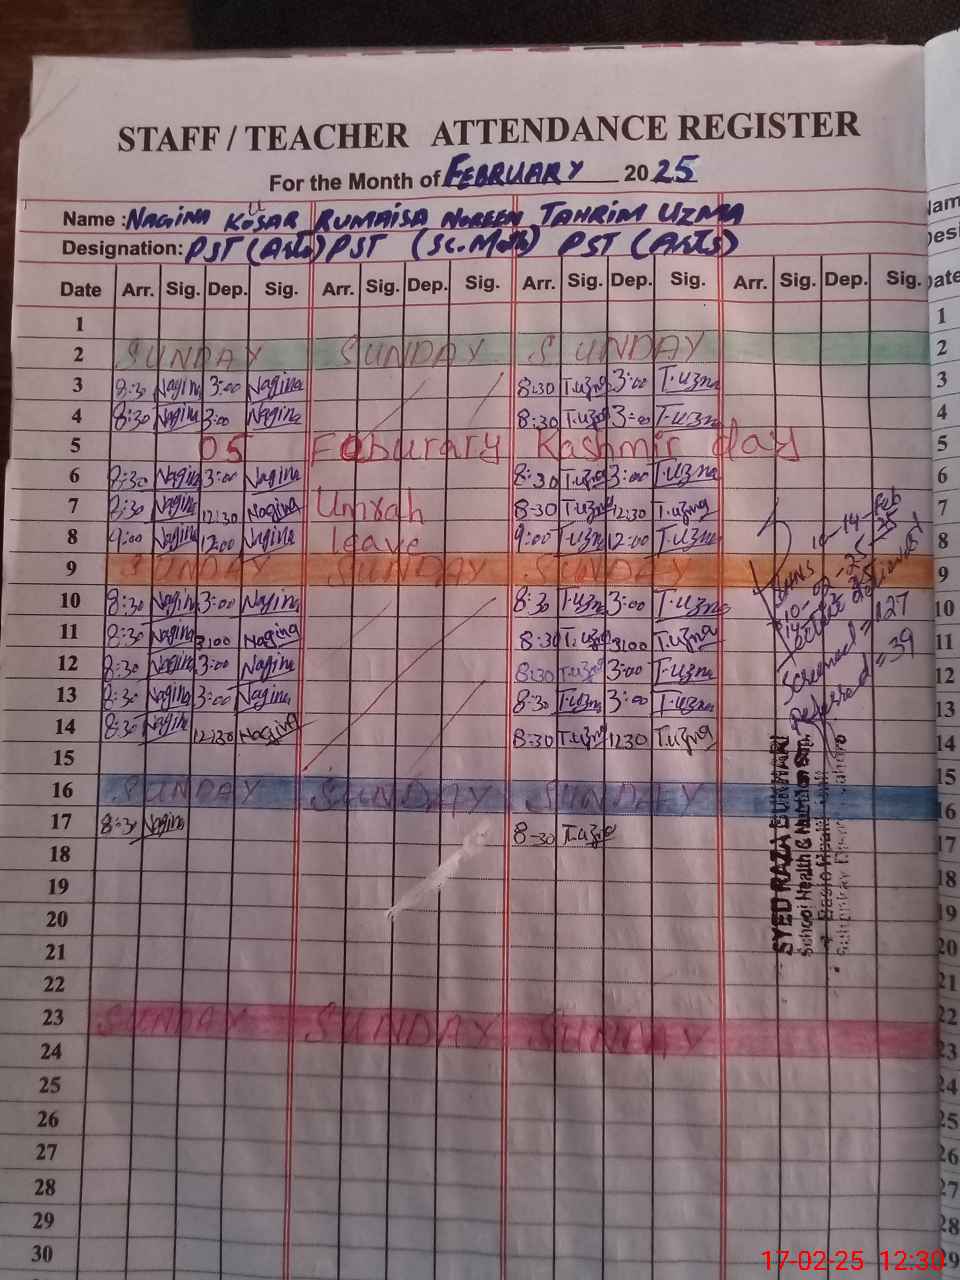 STAFF / TEACHER ATTENDANCE REGISTER
For the Month of FEBRUARY 2025
Name : NAGINA KOSAR RUMAISA NOREEN TAHRIM UZMA
Designation: PST (Arts) PST (Sc.Math) PST (Arts)
Date Arr. Sig. Dep. Sig. Arr. Sig. Dep. Sig. Arr. Sig. Dep. Sig. Arr. Sig. Dep. Sig.
1
2 SUNDAY SUNDAY SUNDAY
3 8:30 Nagina 3:00 Nagina 8:30 T.uzma 3:00 T.uzma
4 8:30 Nagina 3:00 Nagina 8:30 T.uzma 3:00 T.uzma
5 05 Feburary Kashmir day
6 8:30 Nagina 3:00 Nagina 8:30 T.uzma 3:00 T.uzma
7 8:30 Nagina 12:30 Nagina Umrah 8:30 T.uzma 12:30 T.uzma
8 9:00 Nagina 12:00 Nagina leave 9:00 T.uzma 12:00 T.uzma
9 SUNDAY SUNDAY SUNDAY
10 8:30 Nagina 3:00 Nagina 8:30 T.uzma 3:00 T.uzma
11 8:30 Nagina 3:00 Nagina 8:30 T.uzma 3:00 T.uzma
12 8:30 Nagina 3:00 Nagina 8:30 T.uzma 3:00 T.uzma
13 8:30 Nagina 3:00 Nagina 8:30 T.uzma 3:00 T.uzma
14 8:30 Nagina 12:30 Nagina 8:30 T.uzma 12:30 T.uzma
15
16 SUNDAY SUNDAY SUNDAY
17 8:30 Nagina 8:30 T.uzma
18
19
20
21
22
23 SUNDAY SUNDAY SUNDAY
24
25
26
27
28
29
30
10-14-Feb
25
10-02-25
Screened = 127
Referred = 39
SYED RAZA BUKHARI
School Health & Nutrition Sup.
Basic Health
17-02-25 12:30